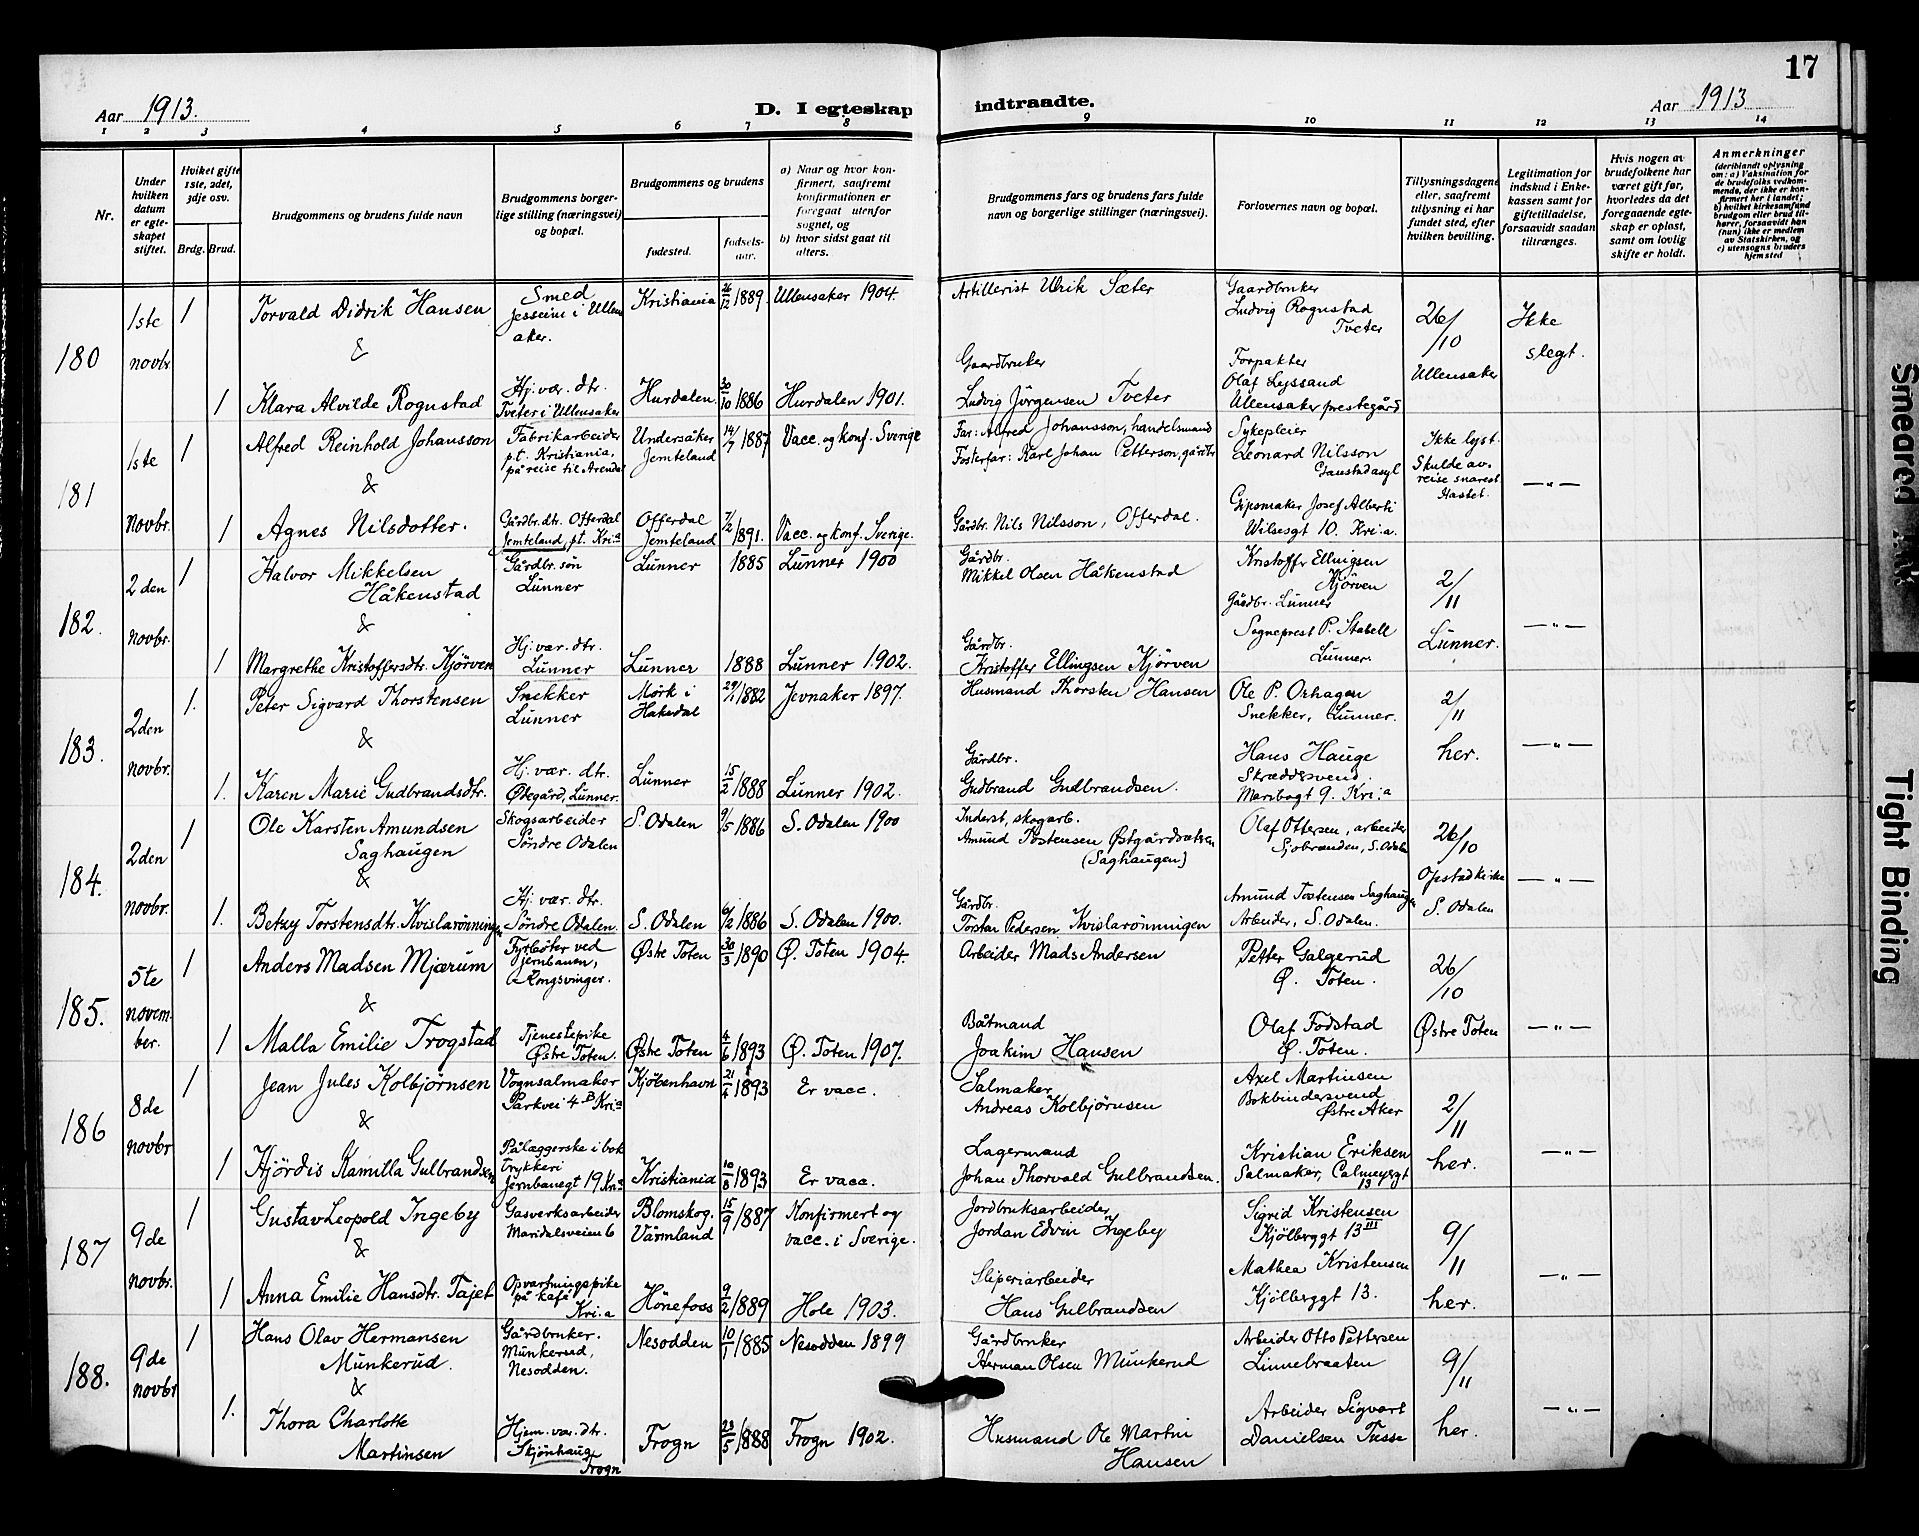 17
Aar 1913. D. I egteskap indtraadte. Aar 1913
1 2 3 4 5 6 7 8 9 10 11 12 13 14
Nr.
Under hvilken datum er egteskapet stiftet.
Hvilket gifte 1ste, 2det, 3dje osv.
Brdg. Brud.
Brudgommens og brudens fulde navn
Brudgommens borgerlige stilling (næringsvei) og bopæl.
Brudgommens og brudens
fødested.
fødselsaar.
a) Naar og hvor konfirmert, saafremt konfirmationen er foregaat utenfor sognet, og
b) hvor sidst gaat til alters.
Brudgommens fars og brudens fars fulde navn og borgerlige stillinger (næringsvei).
Forlovernes navn og bopæl.
Tillysningsdagene eller, saafremt tillysning ei har fundet sted, efter hvilken bevilling.
Legitimation for indskud i Enkekassen samt for giftetilladelse, forsaavidt saadan tiltrænges.
Hvis nogen av brudefolkene har været gift før, hvorledes da det foregaaende egteskap er opløst, samt om lovlig skifte er holdt.
Anmerkninger
(deriblandt oplysning om: a) Vaksination for de brudefolks vedkommende, der ikke er konfirmert her i landet; b) hvilket kirkesamfund brudgom eller brud tilhører, forsaavidt han (hun) ikke er medlem av Statskirken, og c) utensogns bruders hjemsted
180 1ste novbr. 1 Torvald Didrik Hansen Smed Jessheim i Ullensaker. Kristiania 16/12 1889. Ullensaker 1904. Artillerist Ulrik Sæter Gaardbruker Ludvig Rognstad Tveter 26/10 Ullensaker Ikke slegt.
&
1 Klara Alvilde Rognstad Hj. vær. dtr. Tveter i Ullensaker Hurdalen 30/10 1886 Hurdalen 1901. Gaardbruker Ludvig Jörgensen Tveter Forpakter Olaf Lyssand Ullensaker prestegård
181 1ste Novbr. 1 Alfred Reinhold Johansson Fabrikarbeider p.t. Kristiania, på reise til Arendal Undersåker Jemteland 14/7 1887 Vacc. og konf. Sverige Far: Alfred Johansson, handelsmand Fosterfar: Karl Johan Petterson, gårdbr Sykepleier Leonard Nilsson Gaustadasyl Ikke lyst. Skulde avreise snarest. Hastet. — „ —
&
1 Agnes Nilsdotter. Gårdbr. dtr. Offerdal Jemteland, pt. Kria Offerdal Jemteland 7/2 1891. Vacc. og konf. Sverige. Gårdbr. Nils Nilsson, Offerdal. Gipsmaker Josef Alberti Wilsesgt 10. Kri.a.
182. 2den novbr. 1 Halvor Mikkelsen Håkenstad Gårdbr. søn Lunner Lunner 1885 Lunner 1900 Gårdbr. Mikkel Olsen Håkenstad Kristoffer Ellingsen Kjörven Gårdbr. Lunner 2/11 Lunner. — „ —
&
1 Margrethe Kristoffersdtr. Kjörven Hj. vær. dtr. Lunner Lunner 1888 Lunner 1902. Gårdbr. Kristoffer Ellingsen Kjörven Sogneprest P. Stabell Lunner.
183. 2den novbr. 1. Peter Sigvard Thorstensen Snekker Lunner Mørk i Hakedal 29/1 1882 Jevnaker 1897. Husmand Thorsten Hansen Ole P. Orhagen Snekker, Lunner. 2/11 her. — „ —
&
1. Karen Marie Gudbrandsdtr. Hj. vær. dtr. Ødegård, Lunner. Lunner 15/2 1888 Lunner 1902. Gårdbr. Gudbrand Gudbrandsen. Hans Hauge Skræddersvend. Maribogt 9. Kri.a
184. 2den novbr. 1 Ole Karsten Amundsen Saghaugen Skogsarbeider Söndre Odalen S. Odalen 9/5 1886 S. Odalen 1900 Inderst, skogarb. Amund Tostensen Østgårdsætren (Saghaugen) Olaf Ottersen, arbeider Sjobranden, S. Odalen 26/10 Opstad kirke S. Odalen — „ —
&
1. Betzy Torstensdtr. Kvislarönningen Hj. vær. dtr. Söndre Odalen. S. Odalen 6/12 1886 S. Odalen 1900. Gårdbr. Torstan Pedersen Kvislarönningen Amund Tostensen Saghaugen Arbeider, S. Odalen.
185. 5te november. 1 Anders Madsen Mjærum Fyrbøter ved Jernbanen, Kongsvinger. Østre Toten 30/3 1890 Ø. Toten 1904. Arbeider Mads Andersen Petter Galgerud Ø. Toten. 26/10 Østre Toten — „ —
&
1 Malla Emilie Trogstad Tjenestepike Østre Toten. Østre Toten 4/6 1893 Ø. Toten 1907. Båtmand Joakim Hansen Olaf Fodstad Ø. Toten.
186 8de novbr 1 Jean Jules Kolbjørnsen Vognsalmaker Parkvei 4 B Kria Kjøbenhavn 21/4 1893 Er vacc. Salmaker Andreas Kolbjørnsen Axel Martinsen Bokbindersvend Østre Aker 2/11 her. — „ —
&
1 Hjördis Kamilla Gulbrandsen Pålæggerske i boktrykkeri Jernbanegt 19 Kria Kristiania 10/8 1893 Er vacc. Lagermand Johan Thorvald Gulbrandsen. Kristian Eriksen Salmaker, Calmeyergt 13
187 9de novbr. 1 Gustav Leopold Ingeby Gasverksarbeider Maridalsveien 6 Blomskog. Värmland 15/9 1887 Konfirmert og vacc. i Sverige. Jordbruksarbeider Jordan Edvin Ingeby Sigrid Kristensen Kjölberggt 13 III 9/11 her. — „ —
&
1 Anna Emilie Hansdtr. Tajet Opvartningspike på kafé Kri.a Hönefoss 9/2 1889 Hole 1903. Sliperiarbeider Hans Gulbrandsen Mathea Kristensen Kjölberggt 13.
188. 9de novbr 1 Hans Olav Hermansen Munkerud. Gårdbruker. Munkerud, Nesodden. Nesodden 10/1 1885 Nesodden 1899 Gårdbruker Herman Olsen Munkerud Arbeider Otto Pettersen Linnebraaten 9/11 her. — „ —
&
1. Thora Charlotte Martinsen Hjem. vær. dtr. Skjönhaug Frogn Frogn 23/5 1888 Frogn 1902. Husmand Ole Martin Hansen Arbeider Sigvart Danielsen Tusse
Smeared Ink
Tight Binding